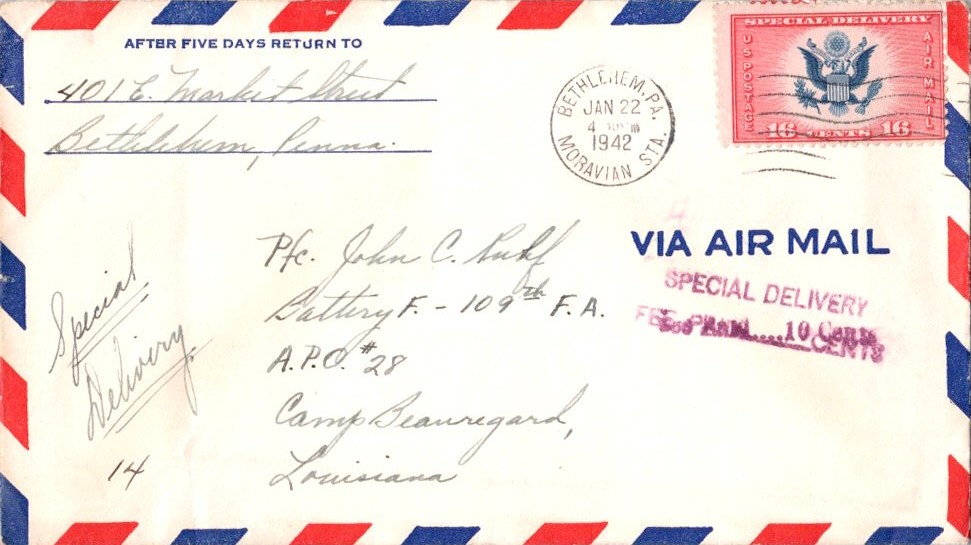 AFTER FIVE DAYS RETURN TO
401 E. Market Street
Bethlehem, Penna.
BETHLEHEM, PA.
JAN 22
4
1942
MORAVIAN STA.
SPECIAL DELIVERY
US POSTAGE
AIR MAIL
16 CENTS 16
VIA AIR MAIL
SPECIAL DELIVERY
FEE PAID 10 Cents
CENTS
Pfc. John C.
Battery F. - 109th F. A.
A.P.O. #28
Camp Beauregard,
Louisiana
Special
Delivery
14